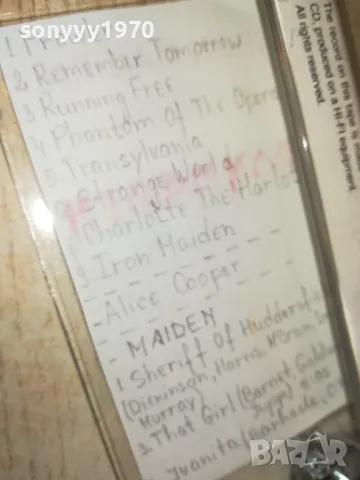 sonyyy1970
1 Pr
2 Remember Tomorrow
3 Running Free
4 Phantom Of The Opera
5 Transylvania
Strange World
Charlotte The Harlot
9 Iron Maiden
- Alice Cooper -
- MAIDEN
1 Sheriff Of Huddersfi
(Dickinson, Harris, McBrain, S
Murray)
3. That Girl (Barnet, Gold
Juanita (Barhade, O
The record on this tape is
CD, produced on a HI-FI equipment.
All rights reserved.
BAZAR